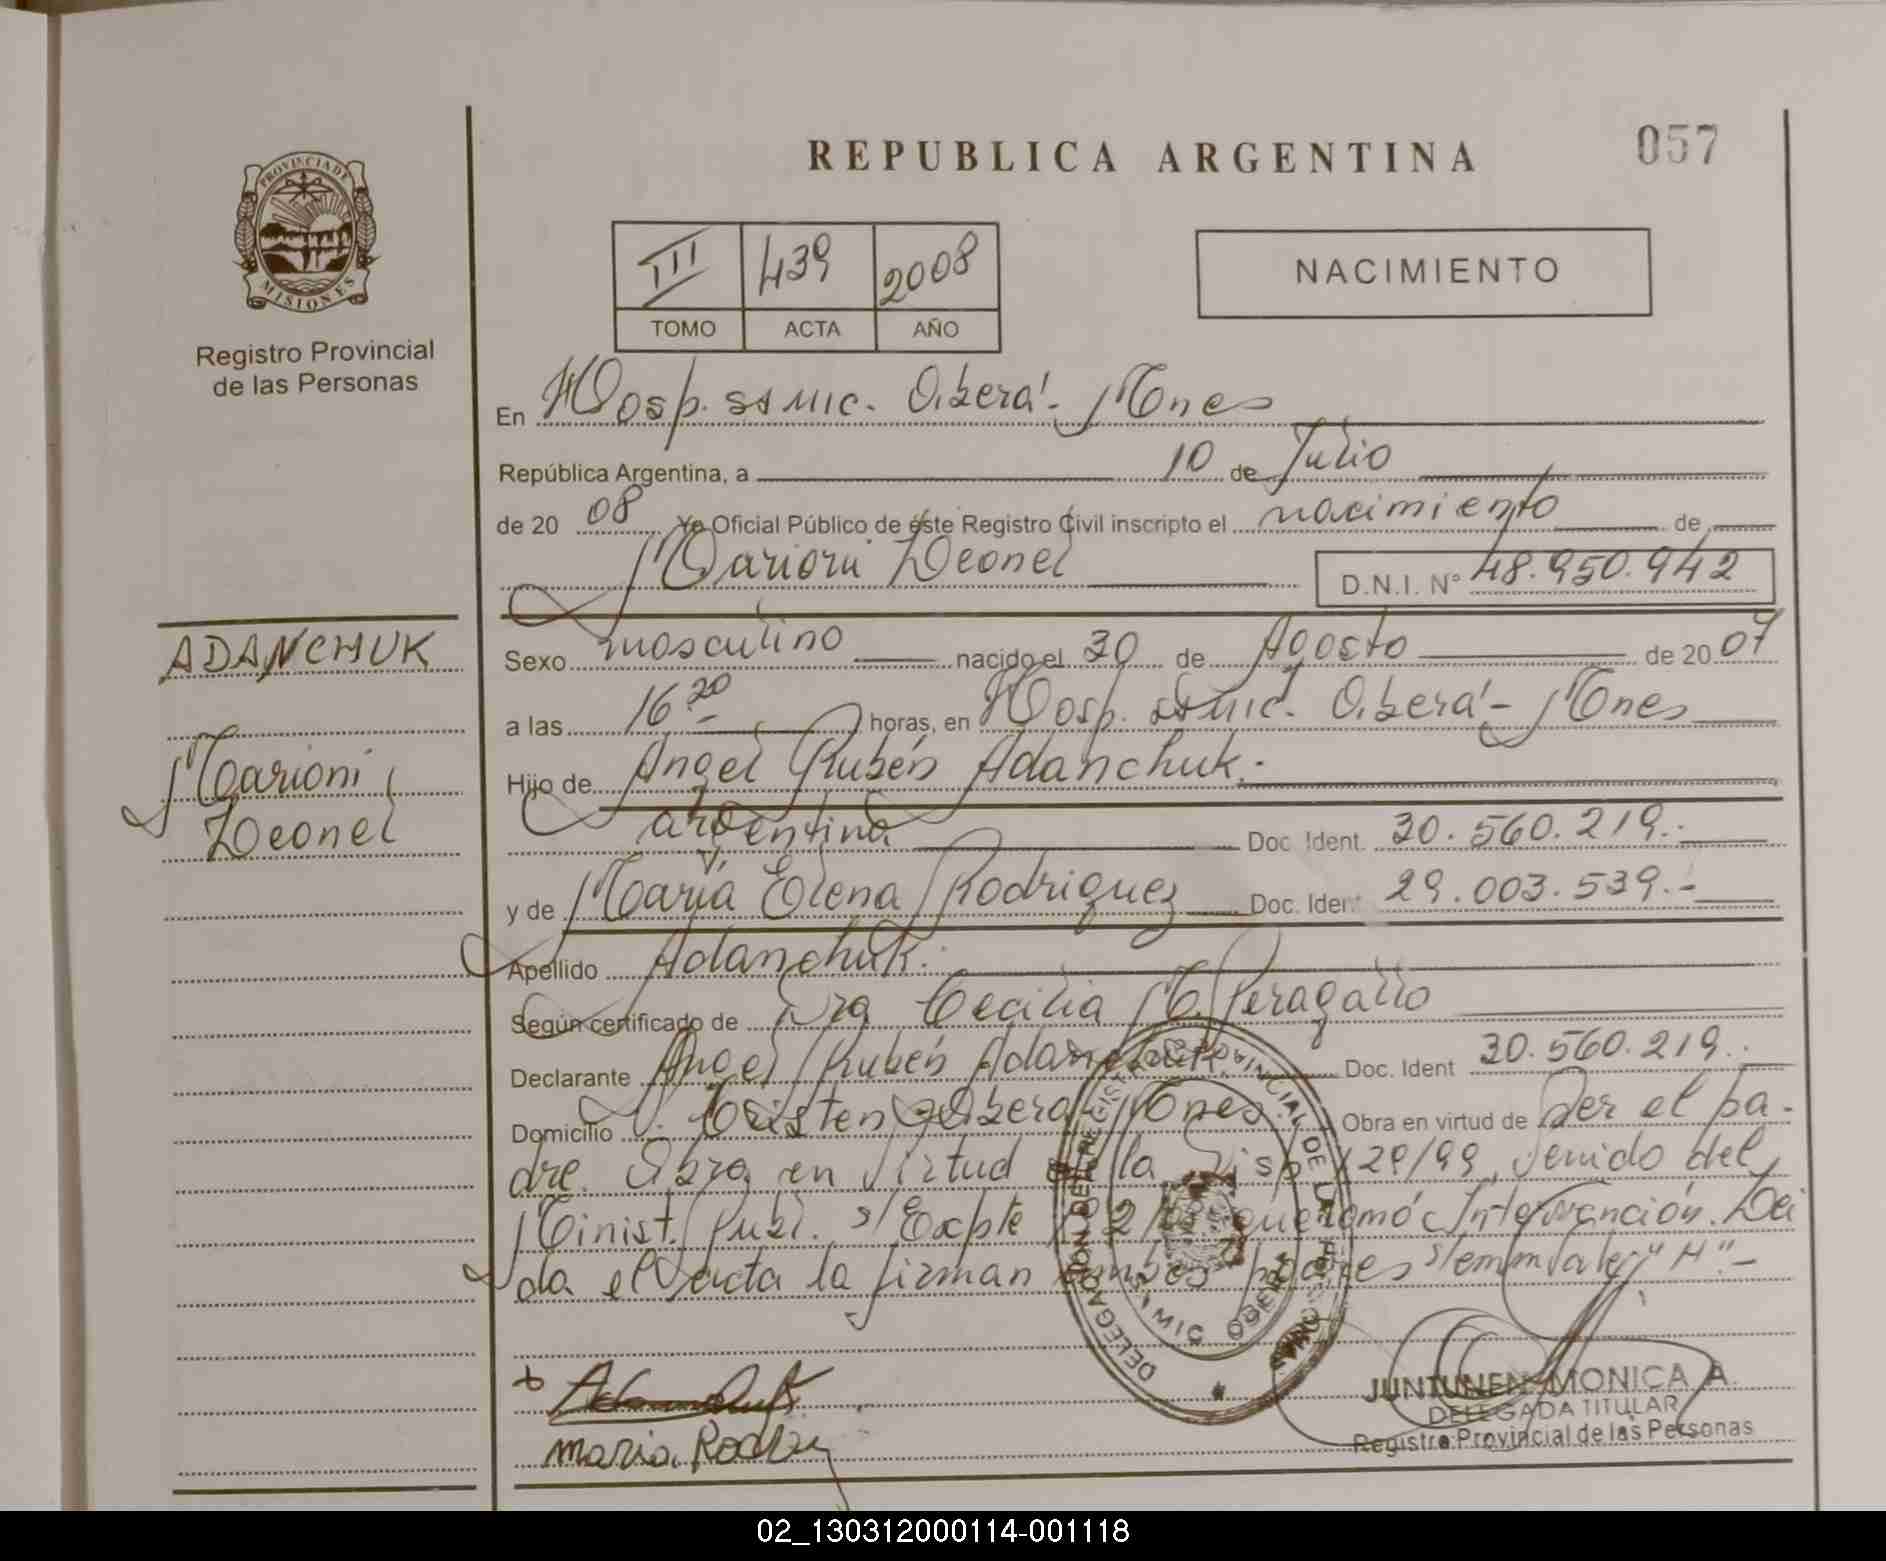 REPUBLICA ARGENTINA
057
PROVINCIA DE
MISIONES
Registro Provincial
de las Personas
III 439 2008
TOMO ACTA AÑO
NACIMIENTO
En Hosp. ssmic. Oberá - Mnes
República Argentina, a 10 de Julio
de 20 08 Yo Oficial Público de éste Registro Civil inscripto el nacimiento de
Marioni Leonel D.N.I. N° 48.950.942
ADANCHUK
Marioni
Leonel
Sexo masculino nacido el 30 de Agosto de 2007
a las 16 30 horas, en Hosp. ssmic. Oberá - Mnes
Hijo de Angel Rubén Adanchuk.-
argentina Doc. Ident. 30.560.219.-
y de María Elena Rodriguez Doc. Ident. 29.003.539.-
Apellido Adanchuk.
Según certificado de Dra Cecilia M. Peragallo
Declarante Angel Rubén Adanchuk Doc. Ident 30.560.219.-
Domicilio Oberá - Mnes. Obra en virtud de Ser el pa-
dre. Obra en virtud la Disp 129/99, venido del
Minist. Publ. s/Expte que tomó Intervención. Lei
da el acta la firman ambos padres s/emm vale: "H".-
DELEGACION DEL REGISTRO PROVINCIAL DE LAS PERSONAS
OBERA
maria Rodr
JUNTUNEN MONICA A.
DELEGADA TITULAR
Registro Provincial de las Personas
02_130312000114-001118